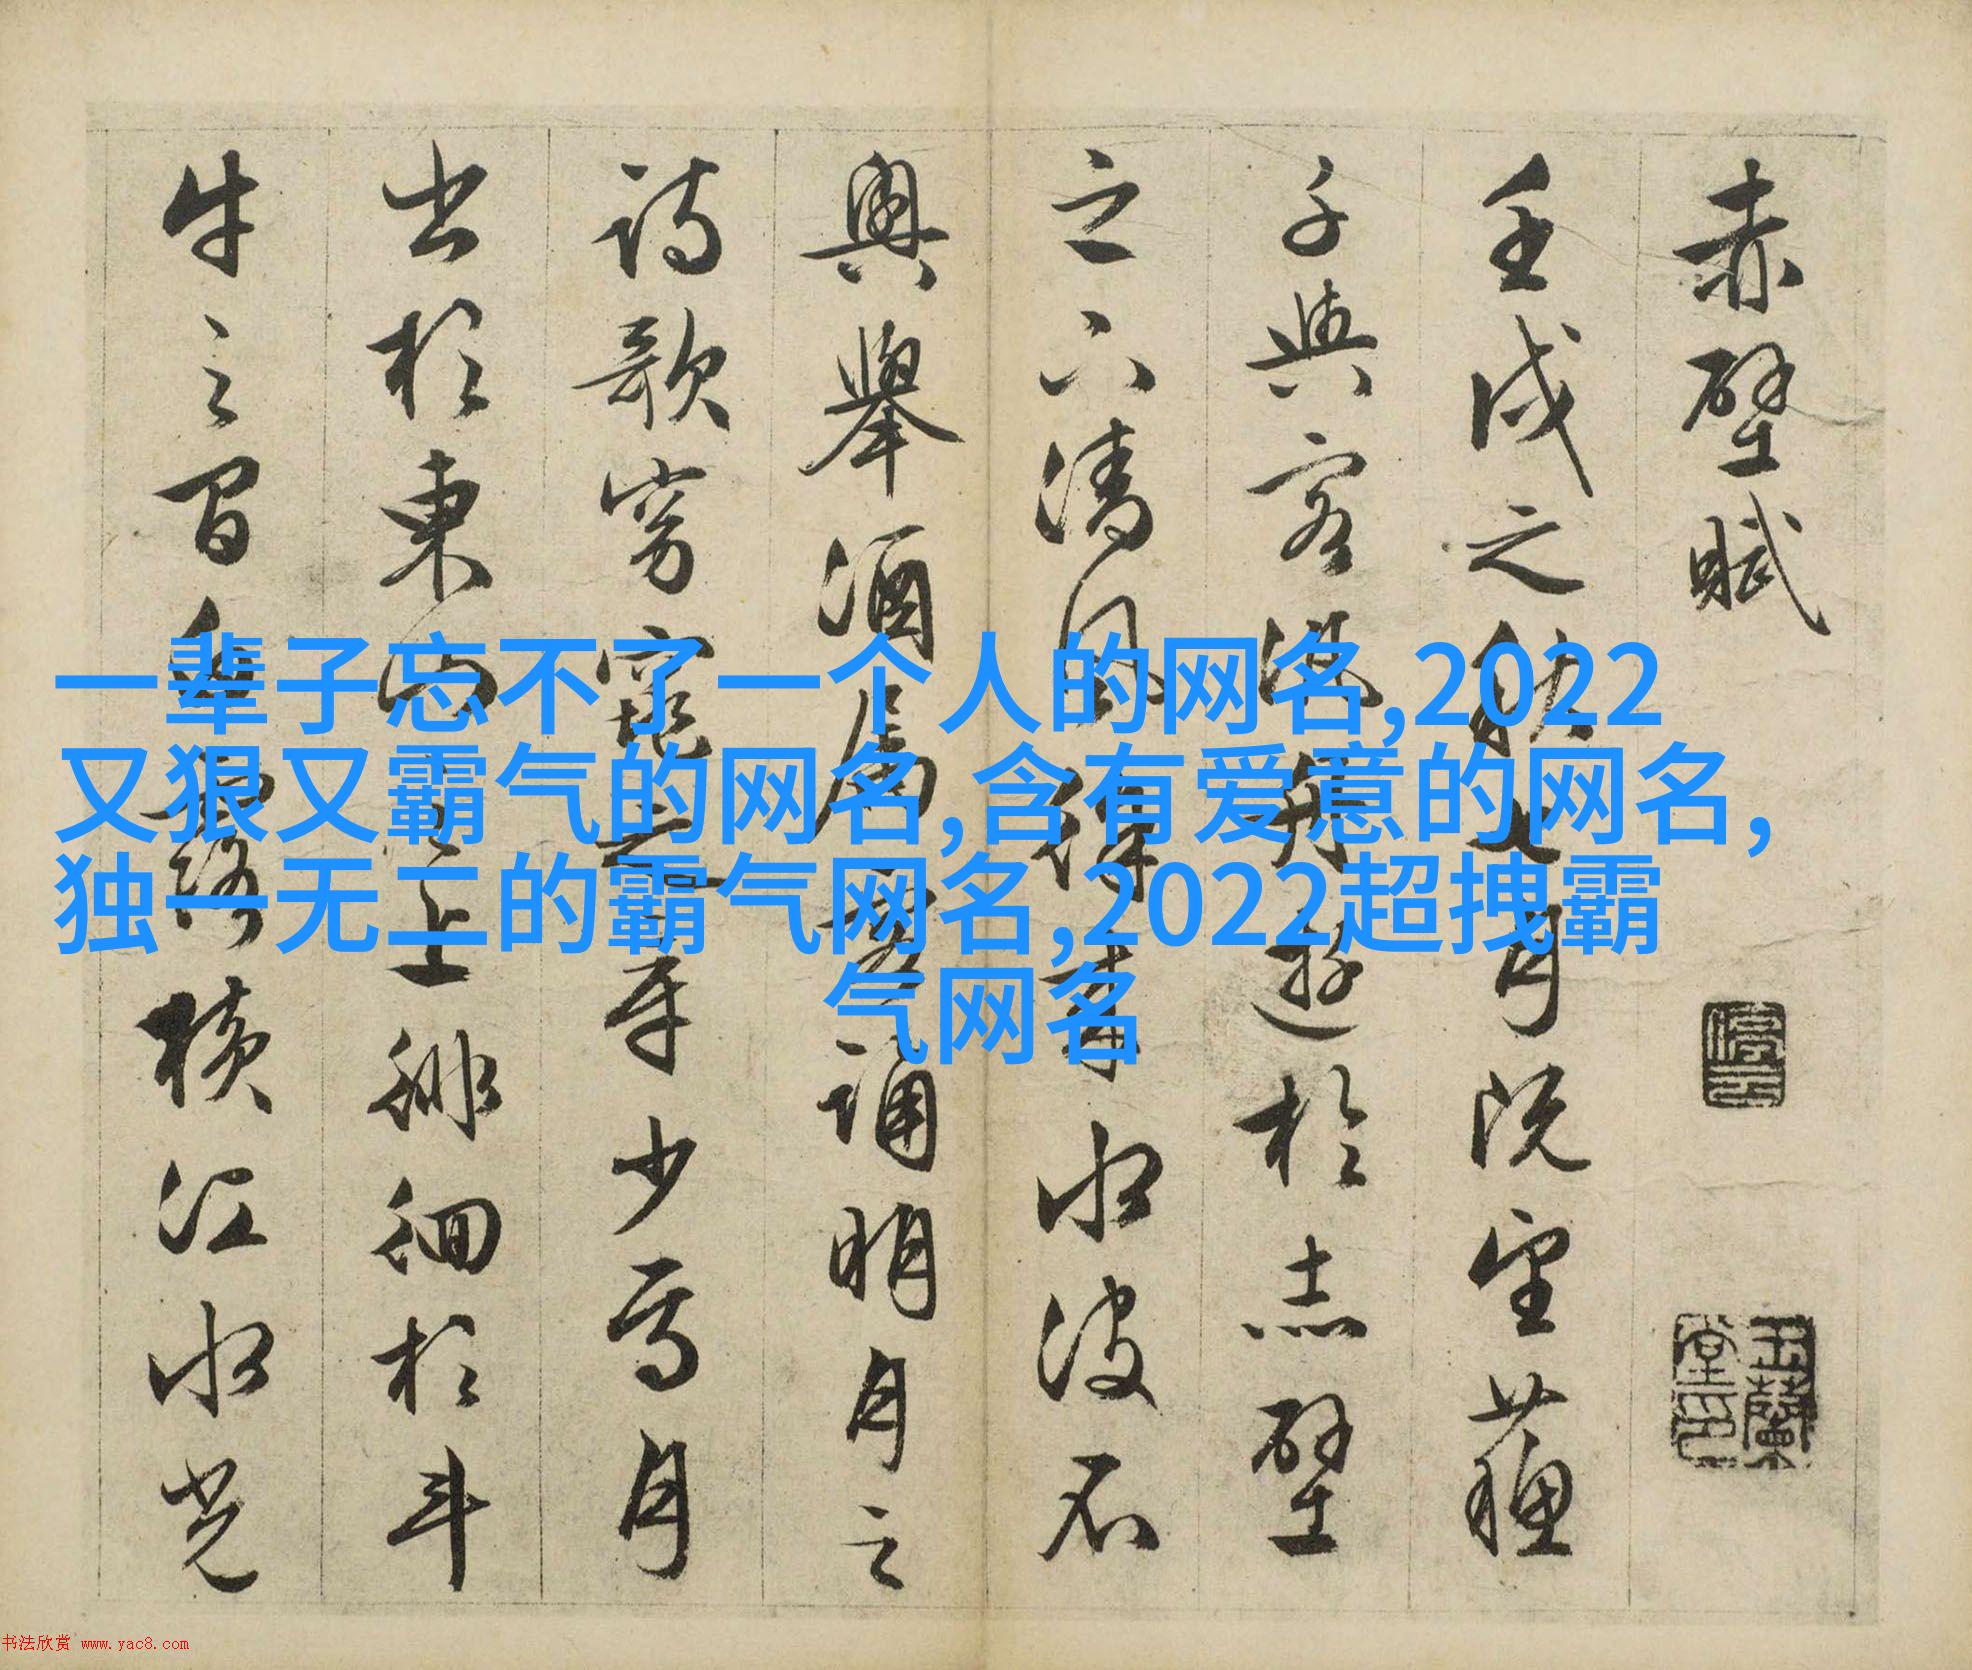 赤壁賦
壬戌之秋七月既望蘇
子與客泛舟遊於赤壁
之下清風徐來水波不
興舉酒屬客誦明月之
詩歌窈窕之章少焉月
出於東山之上徘徊於斗
牛之間白露橫江水光
一辈子忘不了一个人的网名,2022
又狠又霸气的网名,含有爱意的网名,
独一无二的霸气网名,2022超拽霸
气网名
停雲
玉蘭堂印
书法欣赏 www.yac8.com